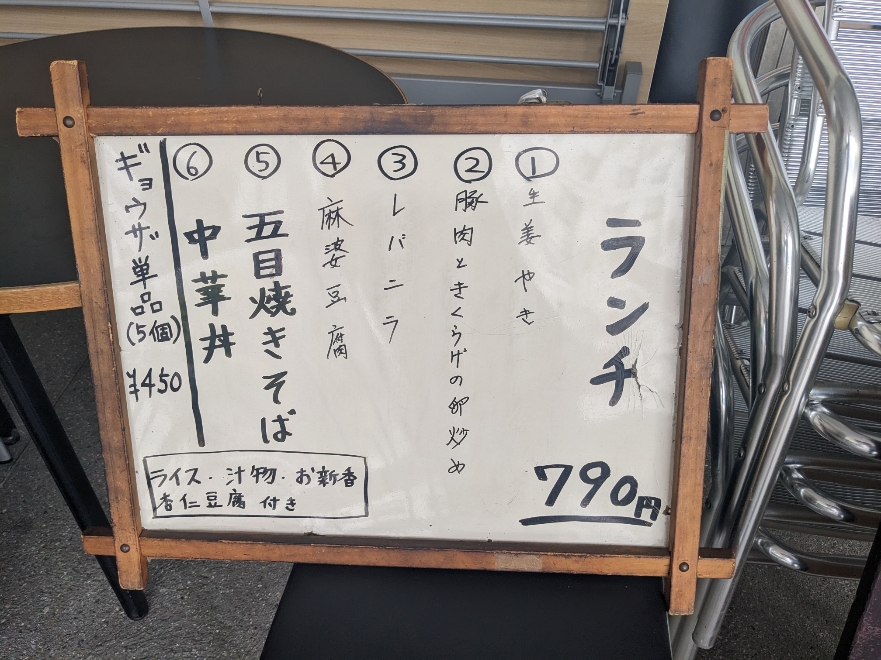 ランチ
790円
① 生姜やき
② 豚肉ときくらげの卵炒め
③ レバニラ
④ 麻婆豆腐
⑤ 五目焼きそば
⑥ 中華丼
ギョウザ単品(5個)¥450
ライス・汁物・お新香
杏仁豆腐 付き